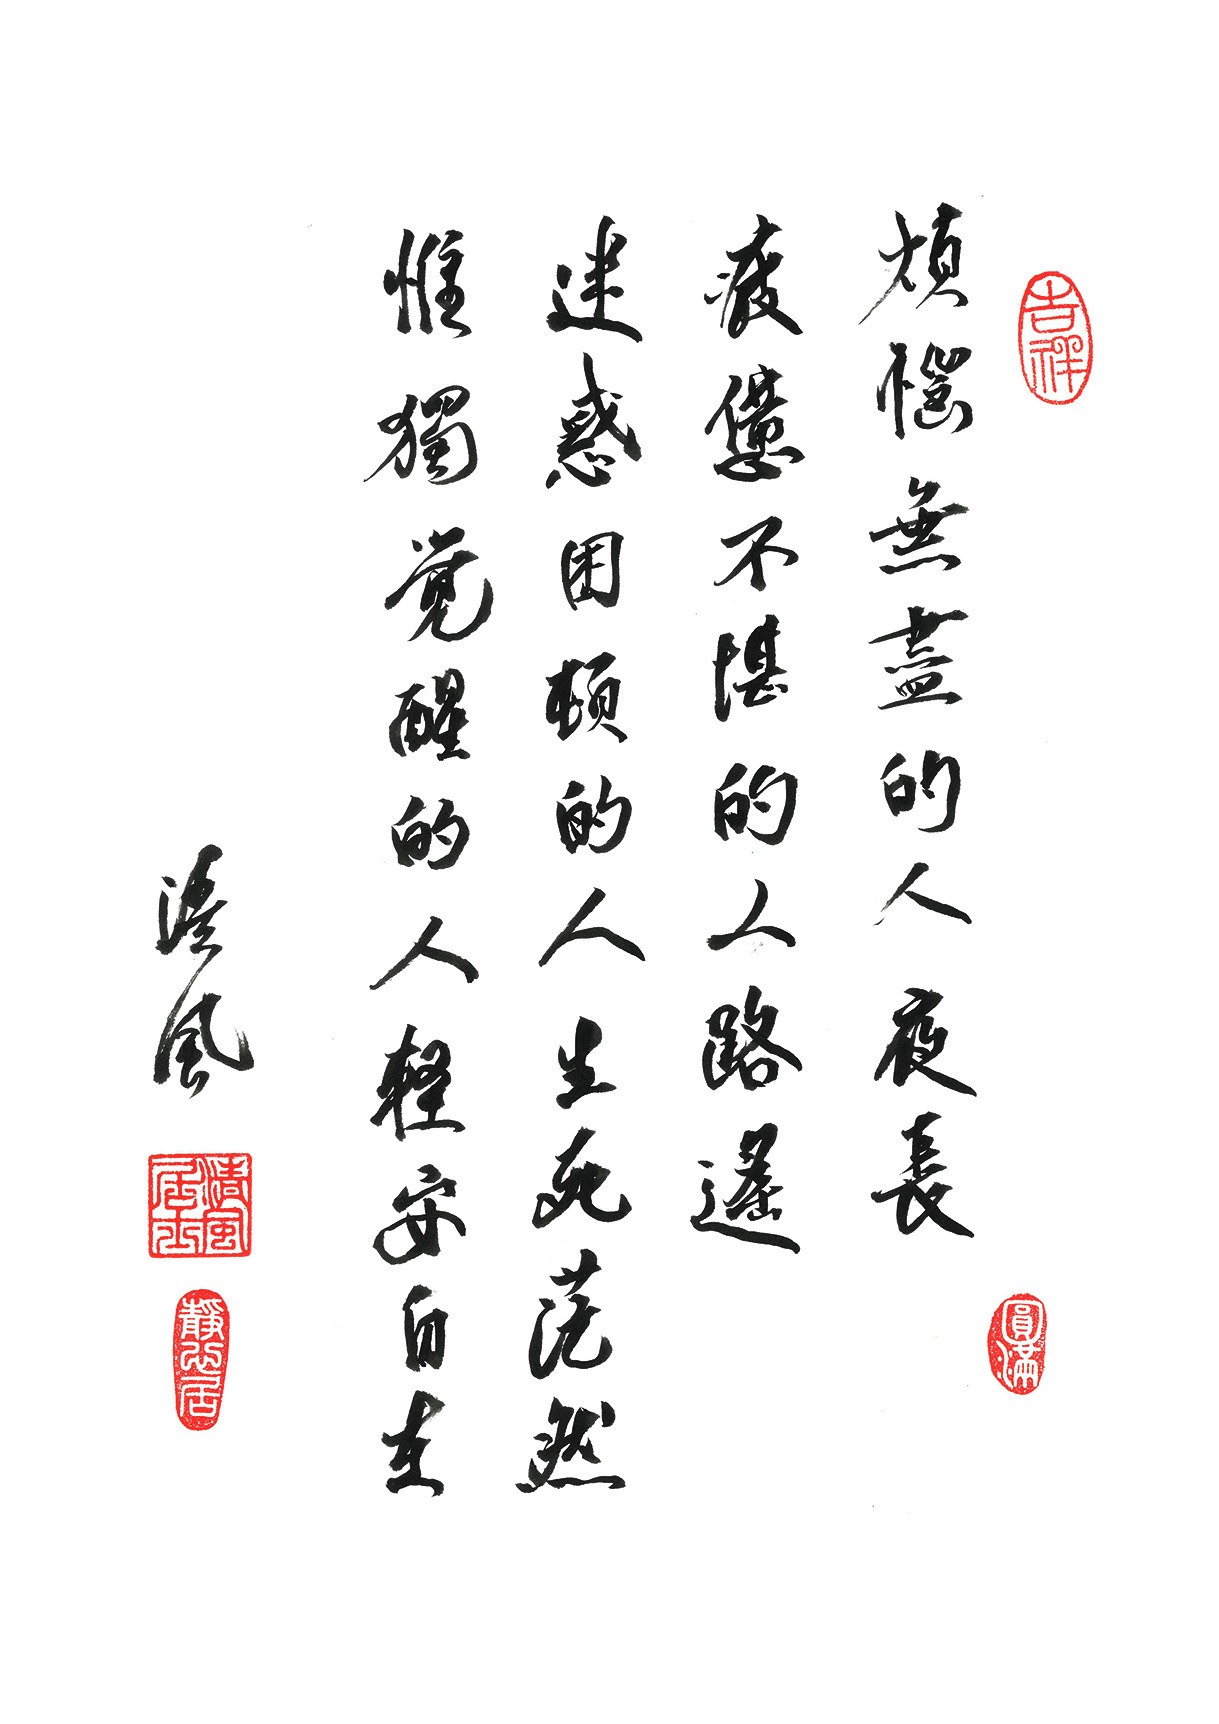 吉祥
煩惱無盡的人夜長
圓滿
疲憊不堪的人路遙
迷惑困頓的人生死茫然
惟獨覺醒的人輕安自在
清風
清風居士
靜心居